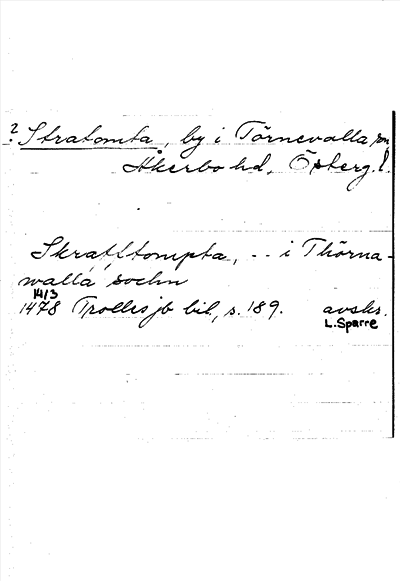 ? Stratomta, by i Törnevalla sn,
Åkerbo hd, Österg. l.
Skratltompta, - - i Thörna-
walla sochn
14/3
1478 Trolles jb bil, s. 189. avskr.
L. Sparre